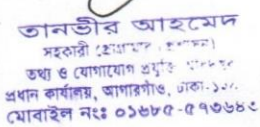 তানভীর আহমেদ
সহকারী
তথ্য ও যোগাযোগ প্রযুক্তি
প্রধান কার্যালয়, আগারগাঁও, ঢাকা-১২
মোবাইল নংঃ ০১৬৮৫-৫৭৩৬৪২